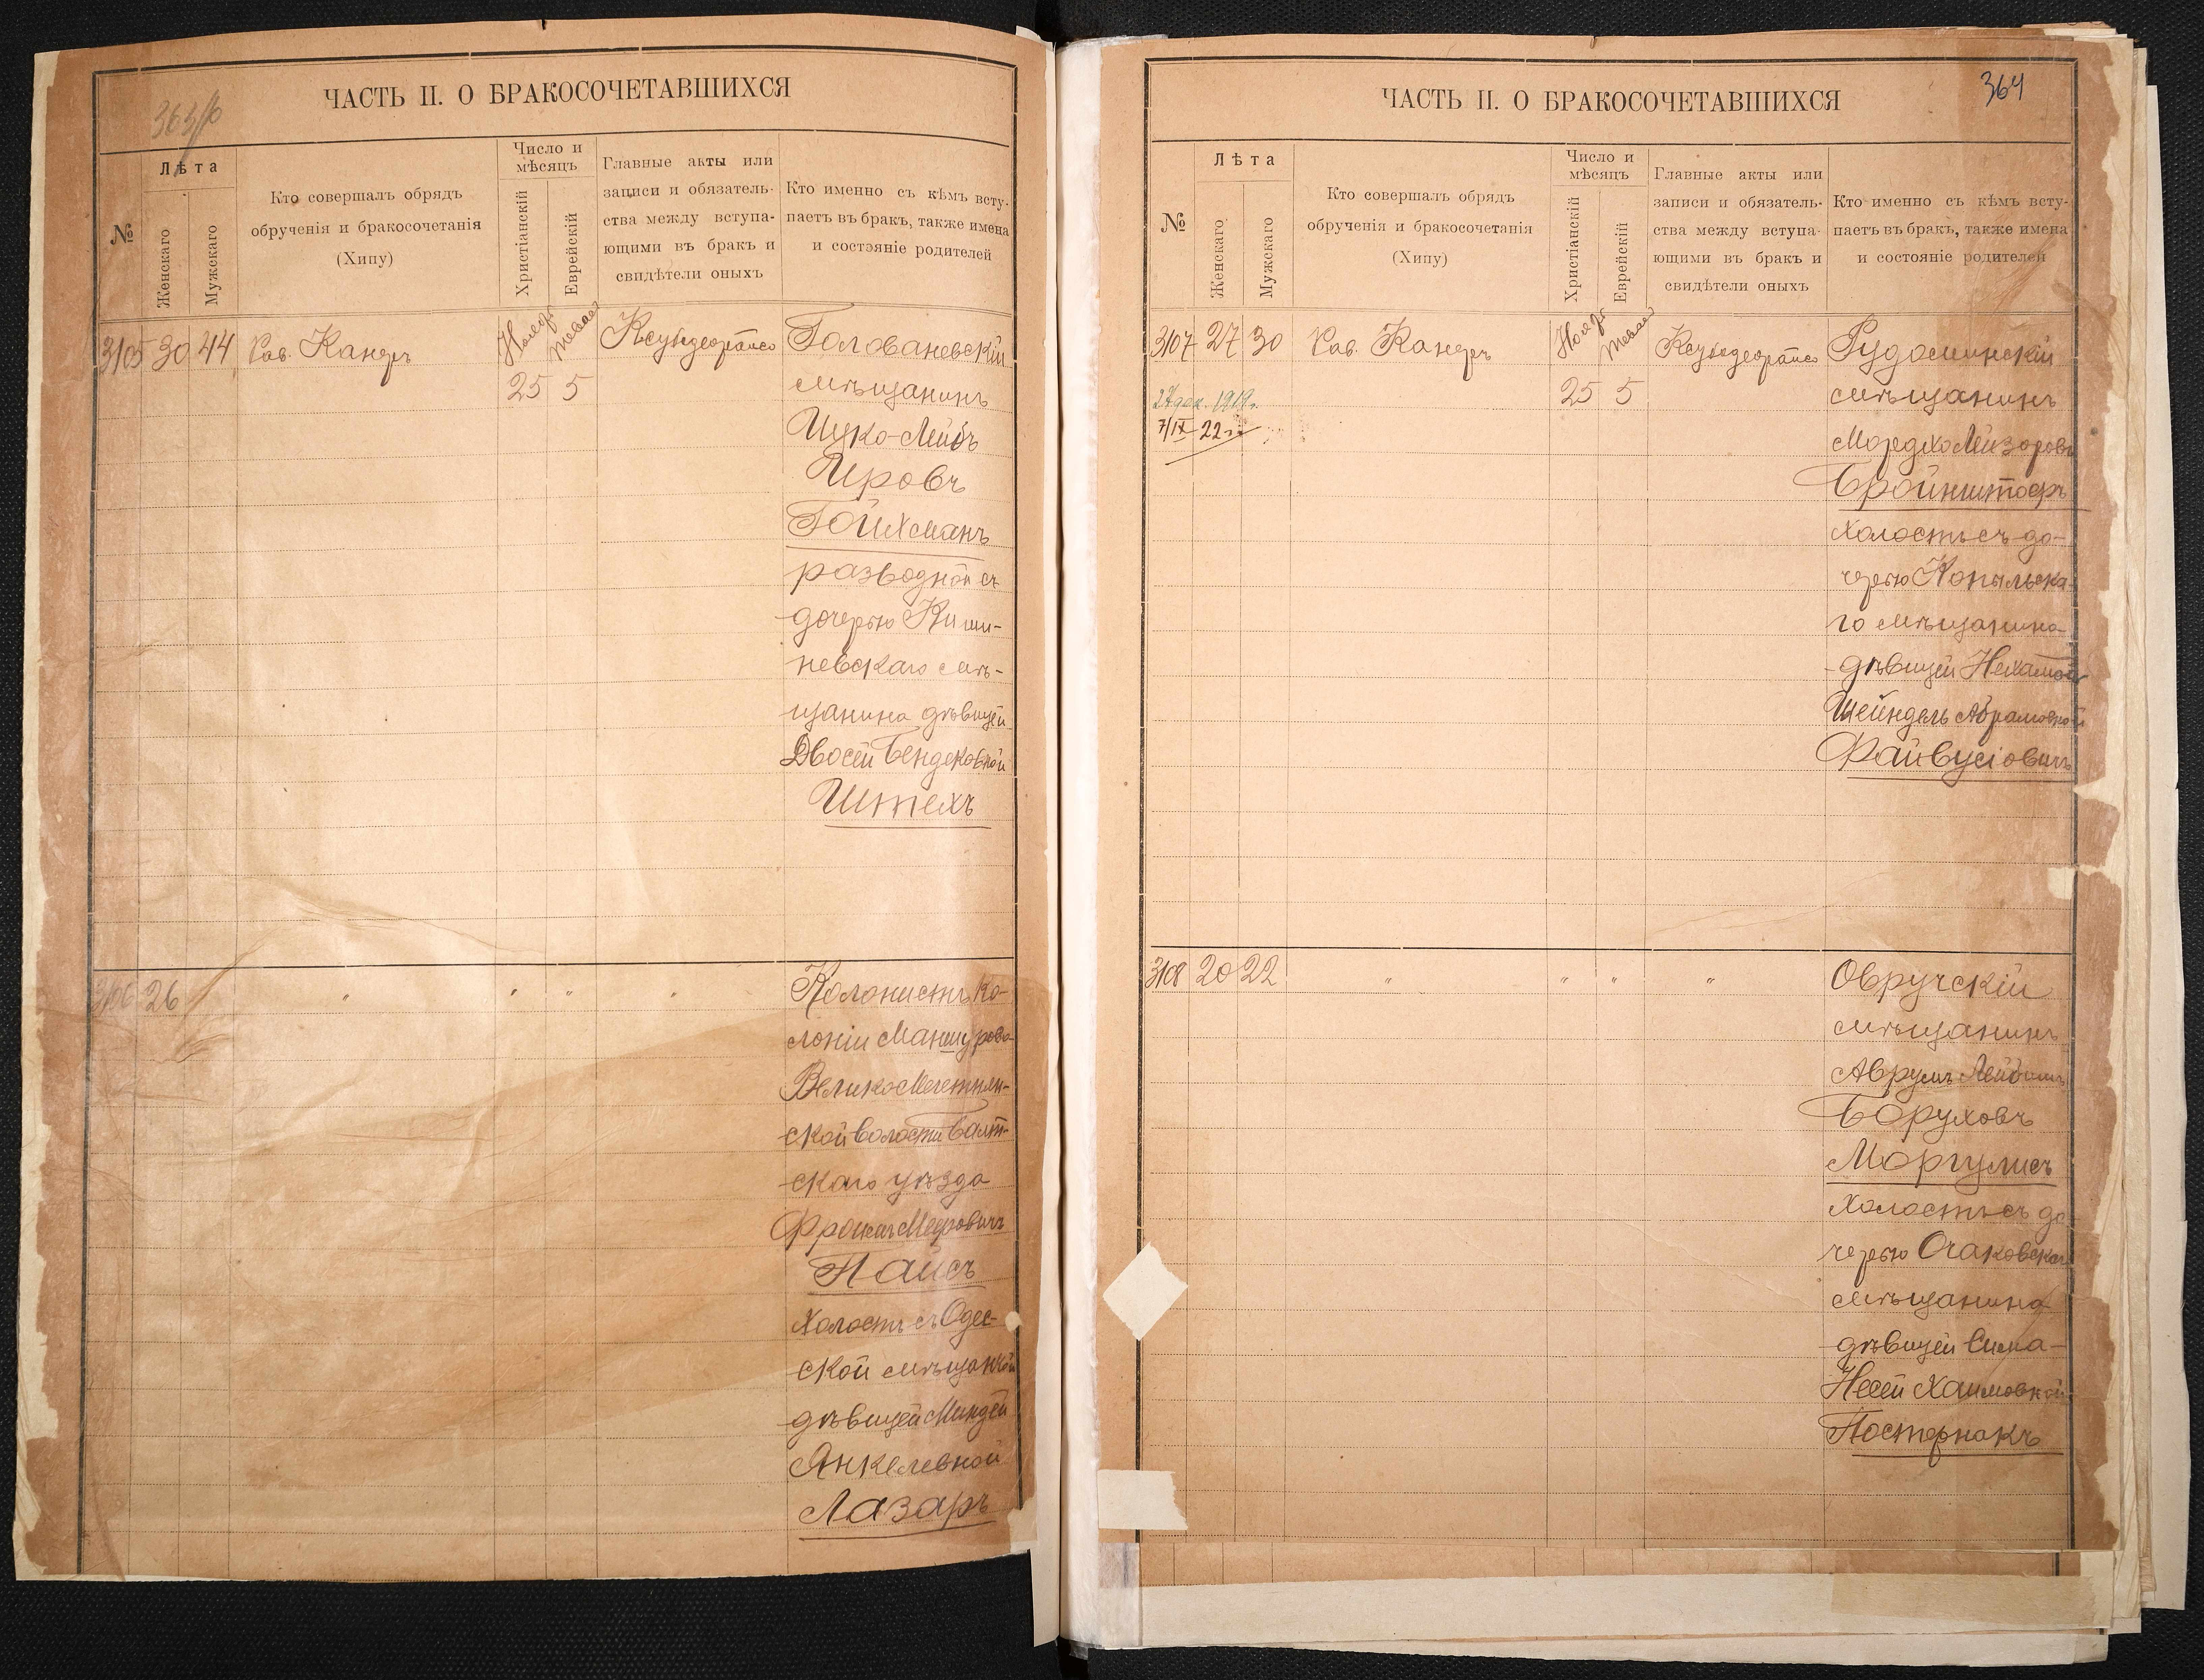 363/б
ЧАСТЬ II. О БРАКОСОЧЕТАВШИХСЯ
№
Лѣта
Женскаго
Мужскаго
Кто совершалъ обрядъ
обрученія и бракосочетанія
(Хипу)
Число и
мѣсяцъ
Христіанскій
Еврейскій
Главные акты или
записи и обязатель-
ства между вступа-
ющими въ бракъ и
свидѣтели оныхъ
Кто именно съ кѣмъ всту-
паетъ въ бракъ, также имена
и состояніе родителей
3105 30 44 Рав. Канеръ
25 5
Голованевскій
мѣщанинъ
Ицко-Лейбъ
Ировъ
Гойхманъ
разводной съ
дочерью Киши-
невскаго мѣ-
щанина дѣвицей
Двосей Бендековной
Штехъ
3106 26 " " " "
Колонистъ ко-
лоніи Маншурова
Велико Мечетнян-
ской волости Балт-
скаго уѣзда
Фроимъ Мееровичъ
Пайсъ
холостъ съ Одес-
ской мѣщанкой
дѣвицей Миндей
Янкелевной
Лазаръ
364
ЧАСТЬ II. О БРАКОСОЧЕТАВШИХСЯ
№
Лѣта
Женскаго
Мужскаго
Кто совершалъ обрядъ
обрученія и бракосочетанія
(Хипу)
Число и
мѣсяцъ
Христіанскій
Еврейскій
Главные акты или
записи и обязатель-
ства между вступа-
ющими въ бракъ и
свидѣтели оныхъ
Кто именно съ кѣмъ всту-
паетъ въ бракъ, также имена
и состояніе родителей
3107 27 30 Рав. Канеръ
25 5
27 дек. 1919г.
7/IX 22 г.
Рудоминскій
мѣщанинъ
Мордхо Лейзеровъ
Бройнштофъ
холостъ съ до-
черью Копыльска-
го мѣщанина
дѣвицей Нехамой
Шейндель Абрамовной
Файвусіовичъ
3108 20 22 " " " "
Овручскій
мѣщанинъ
Аврумъ Лейбишъ
Боруховъ
Моргулисъ
холостъ съ до
черью Очаковскаго
мѣщанина
дѣвицей Сима-
Несей Хаимовной
Постернакъ